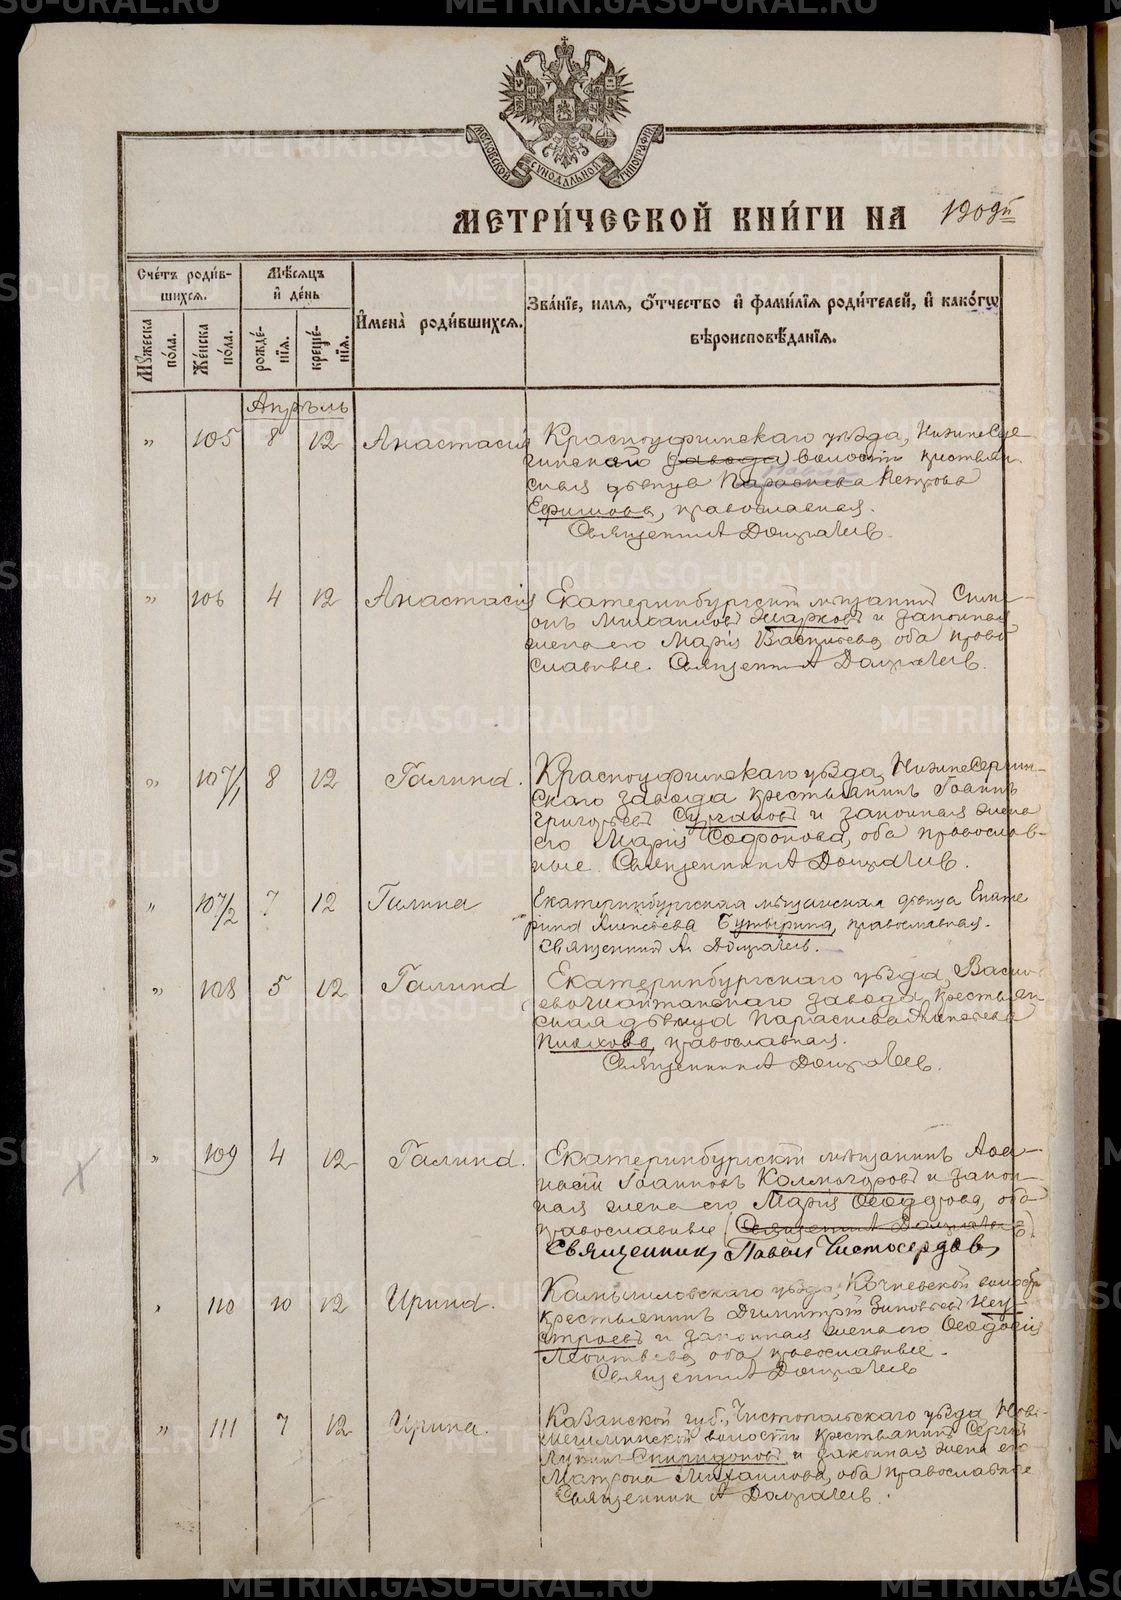 МОСКОВСКОЙ СѴНОДАЛЬНОЙ ТИПОГРАФІИ
МЕТРИ́ЧЕСКОЙ КНИ́ГИ НА 1909й
Сче́тъ роди́в-
шихся.
Мѣ́сяцъ
и҆ де́нь
Мꙋ́жеска
по́ла.
Же́нска
по́ла.
рожде́-
нїѧ.
креще́-
нїѧ.
И҆мена̀ роди́вшихся.
Зва́нїе, имѧ, ѻ҆́тчество и҆ фами́лїѧ роди́телей, и҆ како́гѡ
вѣроисповѣ́данїѧ.
Апрѣль
" 105 8 12 Анастасія Красноуфимскаго уѣзда, Нижнесер-
гинской (завода) волости крестьян-
ская дѣвица Параскева Петрова
Ефимова, православная.
Священникъ А Долгачев.
" 106 4 12 Анастасія Екатеринбургскій мѣщанинъ Сим-
онъ Михаиловъ Жарковъ и законная
жена его Марія Васильева, оба право-
славные. Священникъ А Долгачев.
" 107/1 8 12 Галина. Красноуфимскаго уѣзда, Нижнесергин-
скаго завода крестьянинъ Іоаннъ
Григорьевъ и законная жена
его Марія Софонова, оба православ-
ные. Священникъ А Долгачев.
" 107/2 7 12 Галина Екатеринбургская мѣщанская дѣвица Екате
рина Алексѣева Бутырина, православная.
Священникъ А. Долгачев.
" 108 5 12 Галина Екатеринбургскаго уѣзда, Васил-
ьевошайтанскаго завода, крестьян-
ская дѣвица Параскева Алексѣева
православная.
Священникъ А Долгачев.
" 109 4 12 Галина. Екатеринбургскій мѣщанинъ Аѳа-
насій Іоанновъ Колмогоровъ и закон-
ная жена его Марія Ѳеодорова, оба
православные (Священникъ А Долгачев)
Священникъ Павелъ Чистосердовъ
" 110 10 12 Ирина. Камышловскаго уѣзда, Кочневской волости
крестьянинъ Димитрій Зиновьевъ Неу-
строевъ и законная жена его Ѳеодосія
Леонтьева, оба православные.
Священникъ А Долгачев
" 111 7 12 Ирина. Казанской губ., Чистопольскаго уѣзда Ново-
шешминской волости крестьянинъ Сергій
Лукинъ Спиридоновъ и законная жена его
Матрона Михаилова, оба православные
Священникъ А Долгачев.